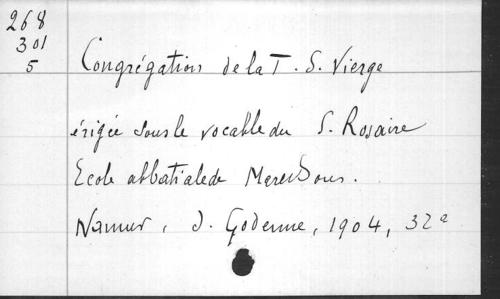 268
301
5
Congrégation de la T. S. Vierge
érigée sous le vocable du S. Rosaire
Ecole abbatiale de Maredsous.
Namur, J. Godenne, 1904, 32ª